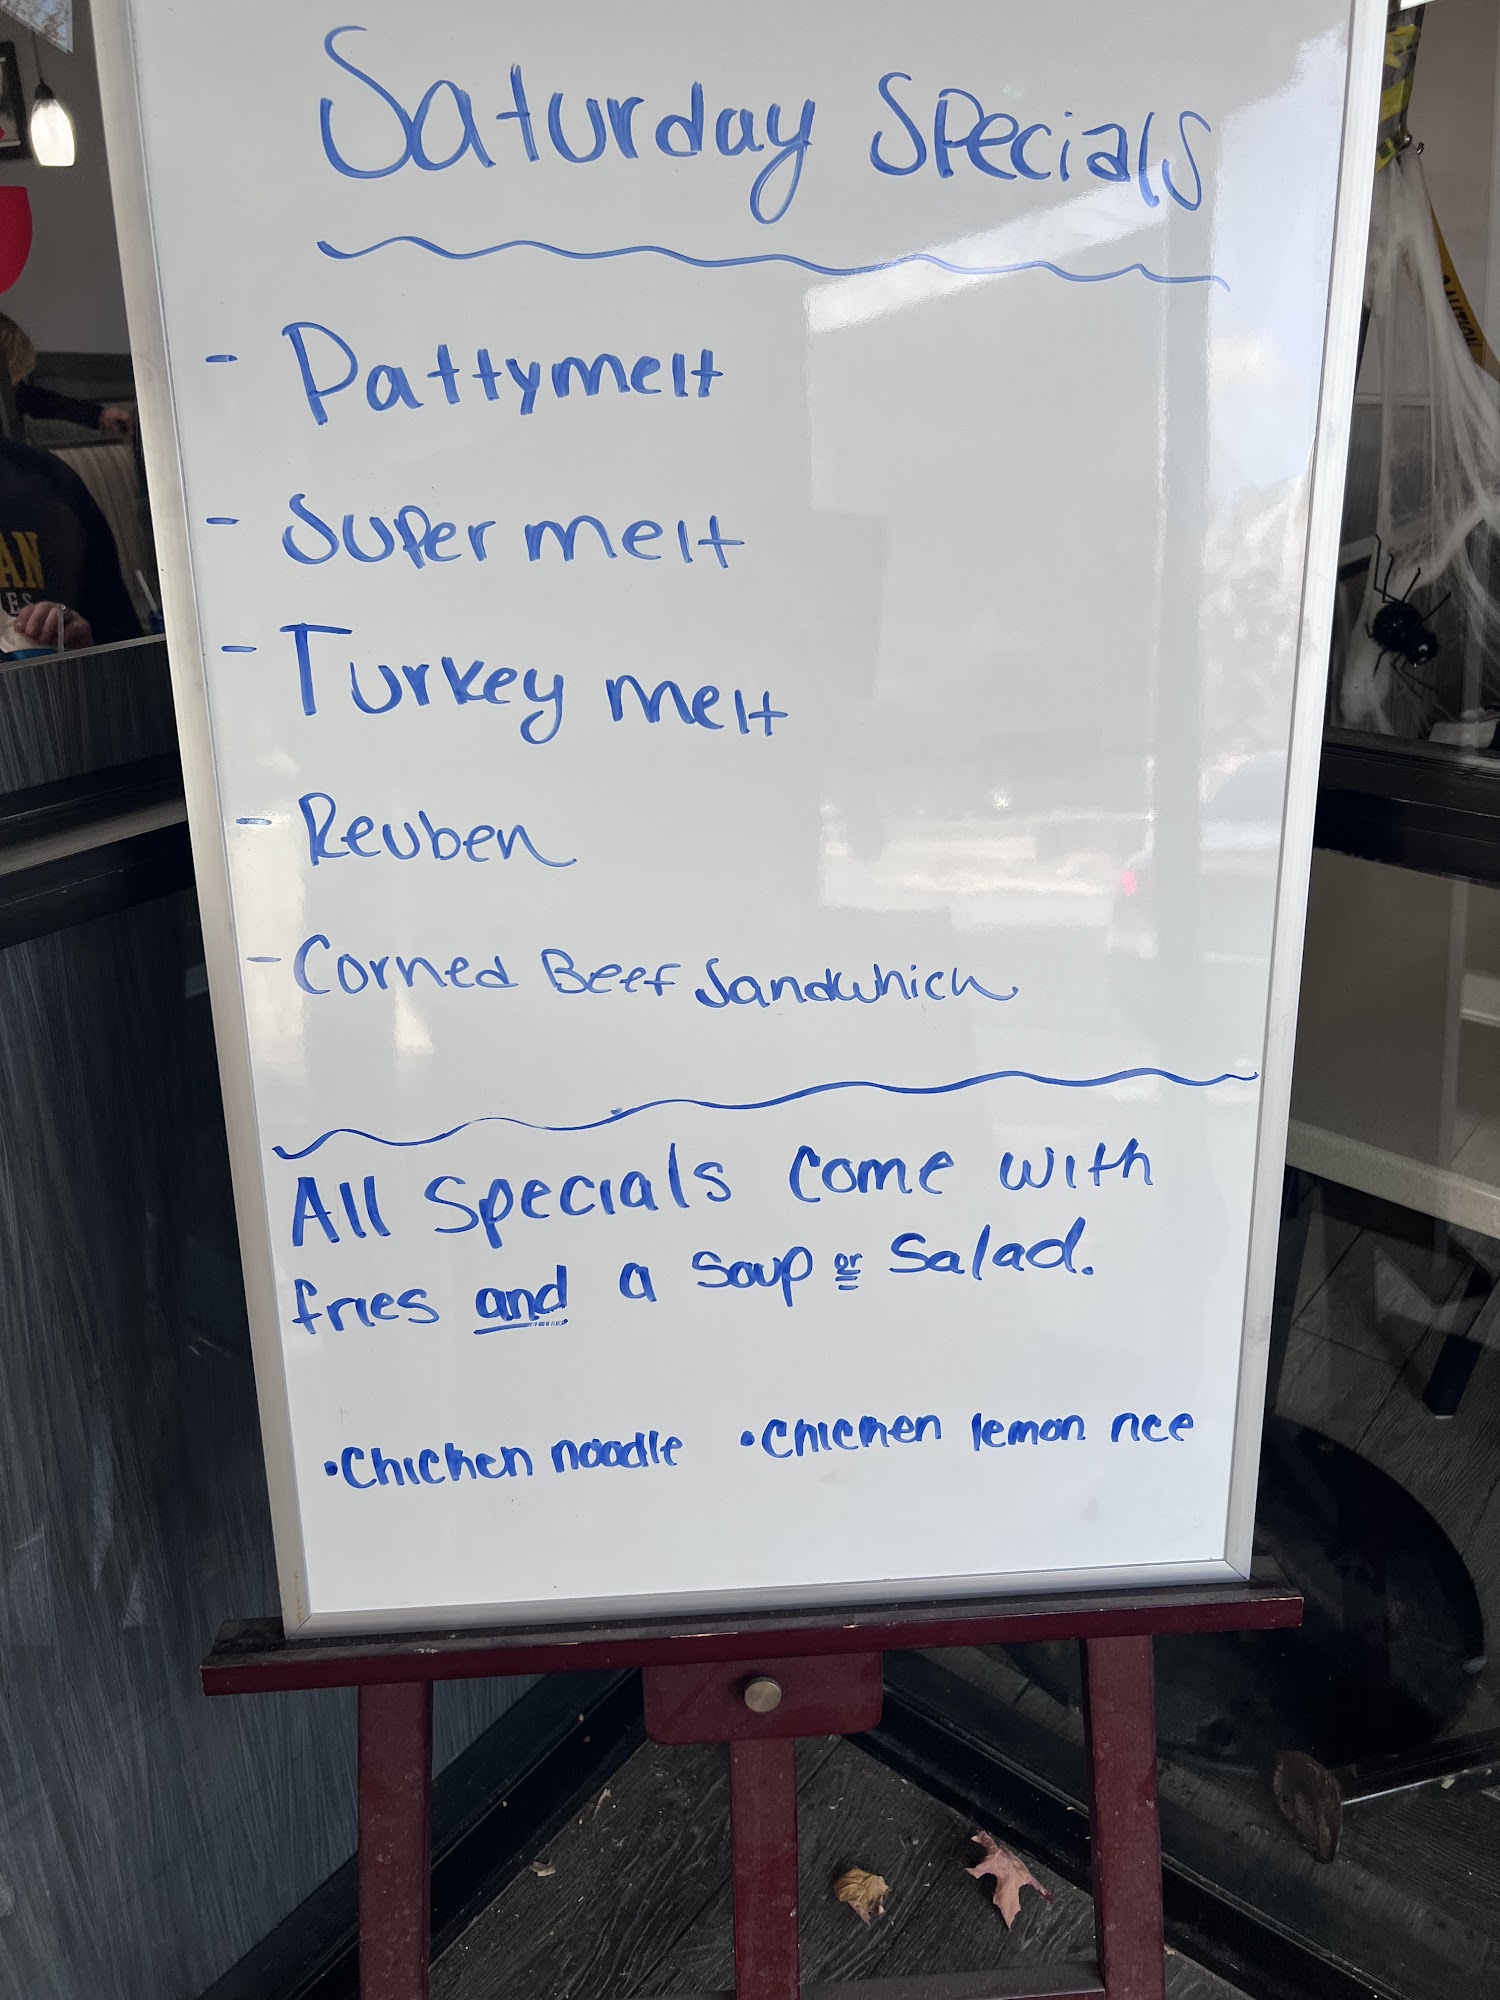 Saturday Specials
- Pattymelt
- Super melt
- Turkey melt
- Reuben
- Corned Beef Sandwhich
All Specials come with
fries and a soup or salad.
•Chicken noodle •Chicken lemon rice
AN
ES
CAUTION